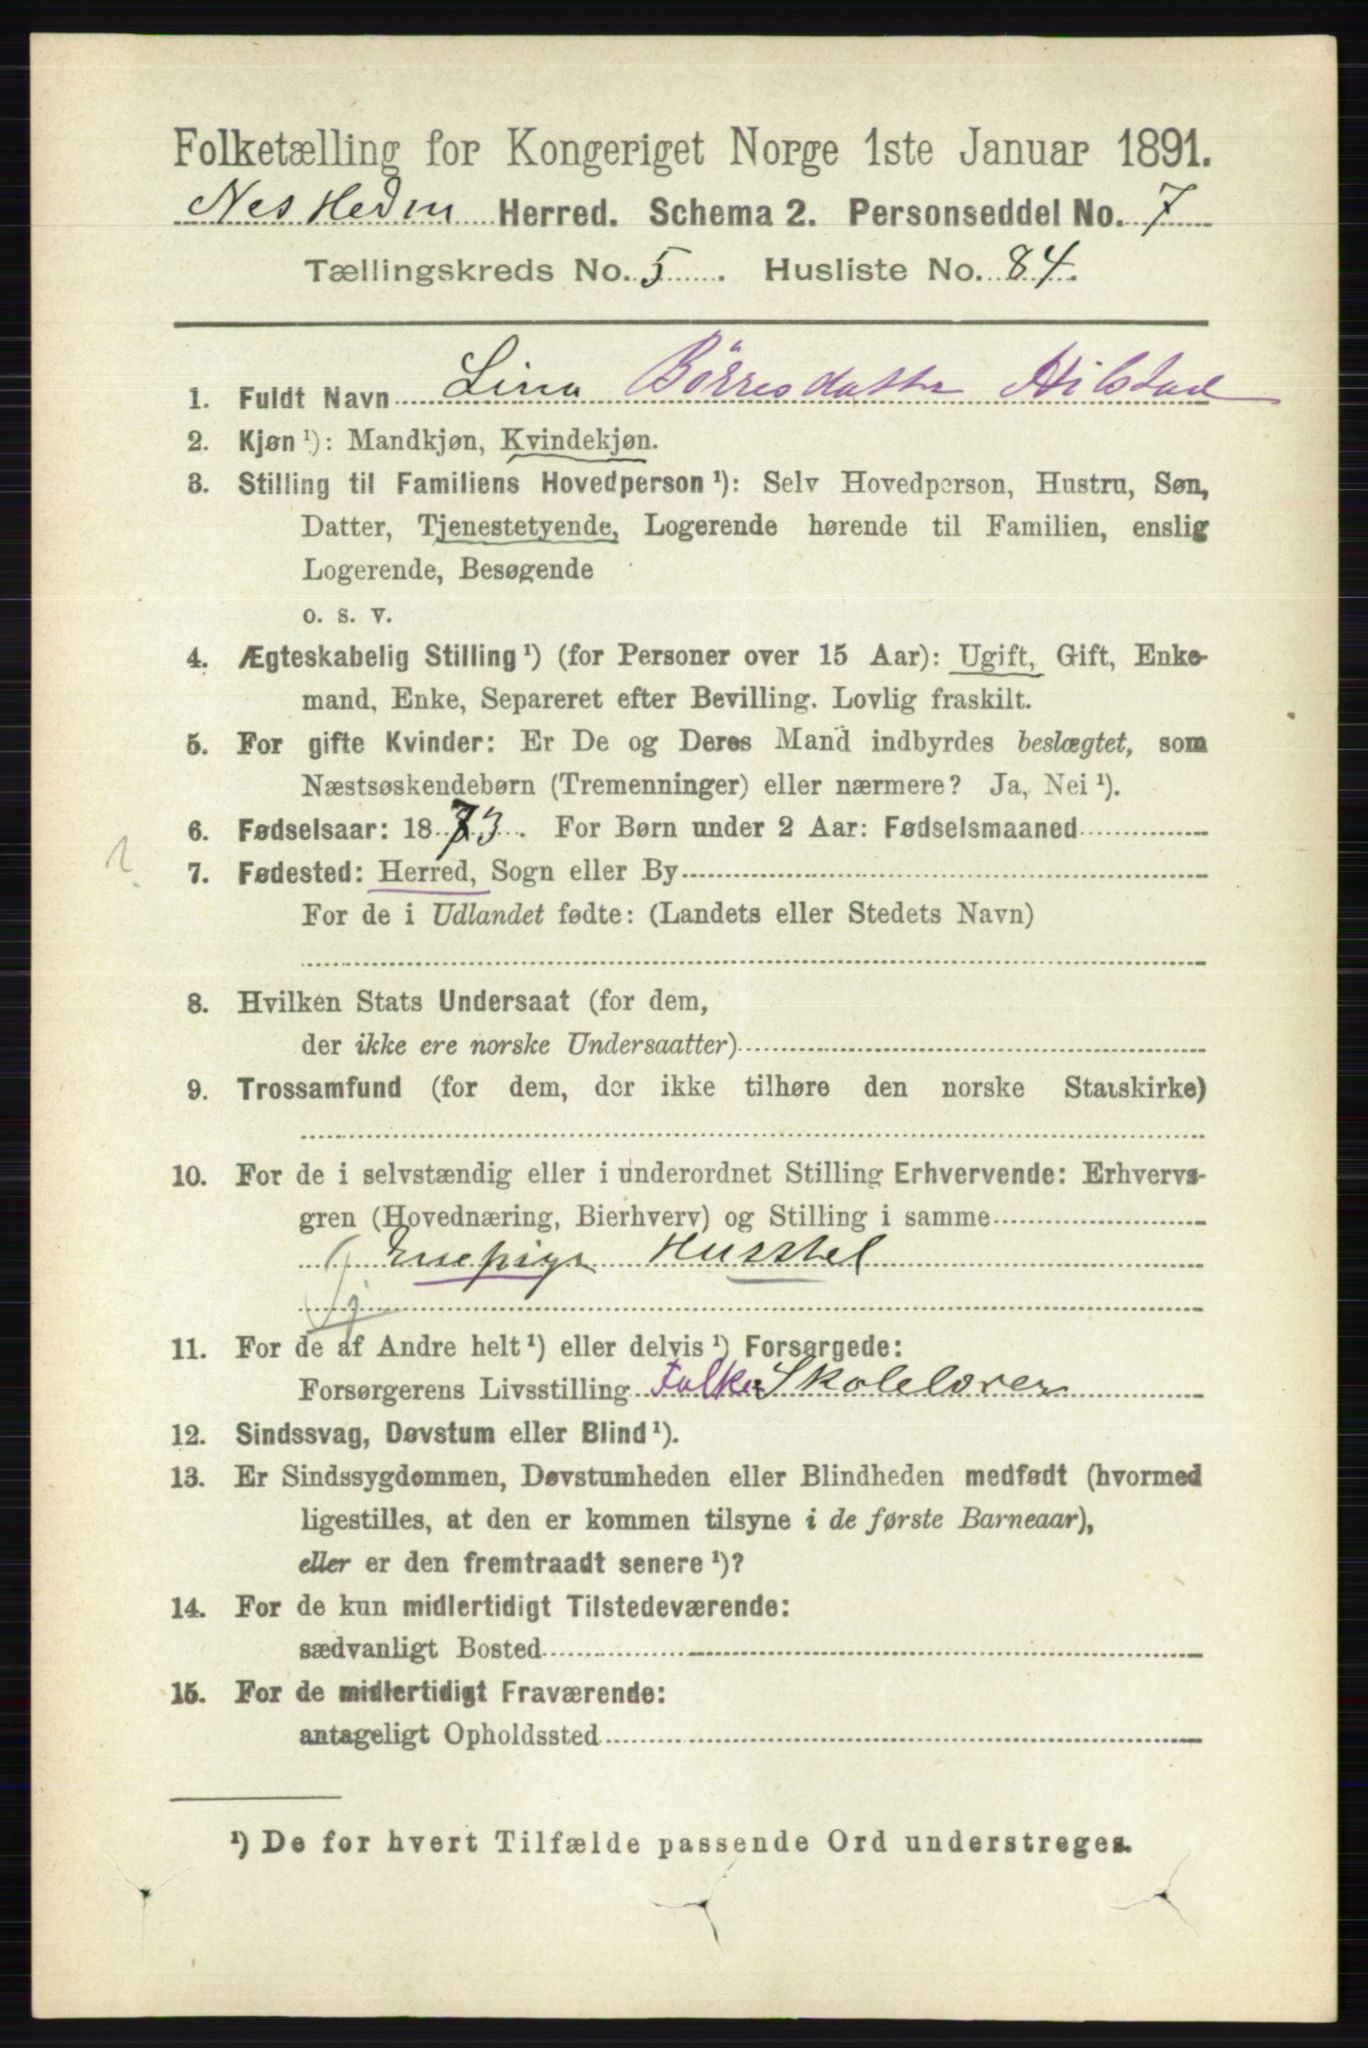 Folketælling for Kongeriget Norge 1ste Januar 1891.
Nes Hedm Herred. Schema 2. Personseddel No. 7
Tællingskreds No. 5. Husliste No. 84.
1. Fuldt Navn Lina Börresdatter Hilstad
2. Kjøn ¹): Mandkjøn, Kvindekjøn.
3. Stilling til Familiens Hovedperson ¹): Selv Hovedperson, Hustru, Søn,
Datter, Tjenestetyende, Logerende hørende til Familien, enslig
Logerende, Besøgende
o. s. v.
4. Ægteskabelig Stilling ¹) (for Personer over 15 Aar): Ugift, Gift, Enke-
mand, Enke, Separeret efter Bevilling. Lovlig fraskilt.
5. For gifte Kvinder: Er De og Deres Mand indbyrdes beslægtet, som
Næstsøskendebørn (Tremenninger) eller nærmere? Ja, Nei ¹).
6. Fødselsaar: 1873. For Børn under 2 Aar: Fødselsmaaned
7. Fødested: Herred, Sogn eller By
For de i Udlandet fødte: (Landets eller Stedets Navn)
8. Hvilken Stats Undersaat (for dem,
der ikke ere norske Undersaatter)
9. Trossamfund (for dem, der ikke tilhøre den norske Statskirke)
10. For de i selvstændig eller i underordnet Stilling Erhvervende: Erhvervs-
gren (Hovednæring, Bierhverv) og Stilling i samme
Husstel
11. For de af Andre helt ¹) eller delvis ¹) Forsørgede:
Forsørgerens Livsstilling Folke Skolelærer
12. Sindssvag, Døvstum eller Blind ¹).
13. Er Sindssygdommen, Døvstumheden eller Blindheden medfødt (hvormed
ligestilles, at den er kommen tilsyne i de første Barneaar),
eller er den fremtraadt senere ¹)?
14. For de kun midlertidigt Tilstedeværende:
sædvanligt Bosted
15. For de midlertidigt Fraværende:
antageligt Opholdssted
¹) De for hvert Tilfælde passende Ord understreges.